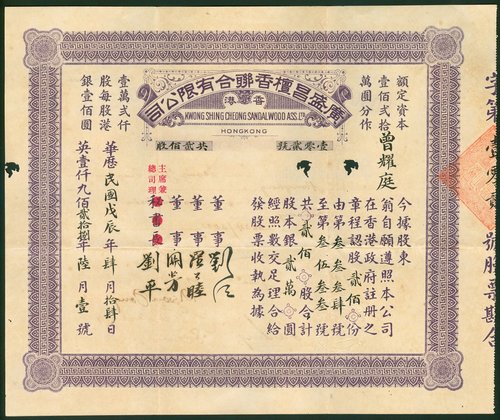 廣盛昌檀香聯合有限公司
香港
KWONG SHING CHEONG SANDALWOOD ASS. LD.
HONGKONG
額定資本
壹佰貳拾
萬圓分作
壹萬貳仟
股每股港
銀壹佰圓
壹零貳號
共貳佰股
曾耀庭
今據股東
翁自願遵照本公司
在香港政府註冊之
章程認股貳佰份
由第叁叁叁肆號
至第叁伍叁叁號
共貳佰股合計
股本銀貳萬圓
經照數交足理合給
發股票收執為據
董事
董事
董事
主席兼
總司理
秘書長
劉平
華歷民國戊辰年肆月拾肆日
英壹仟九佰貳拾捌年陸月壹號
字第壹零貳號股票勘合